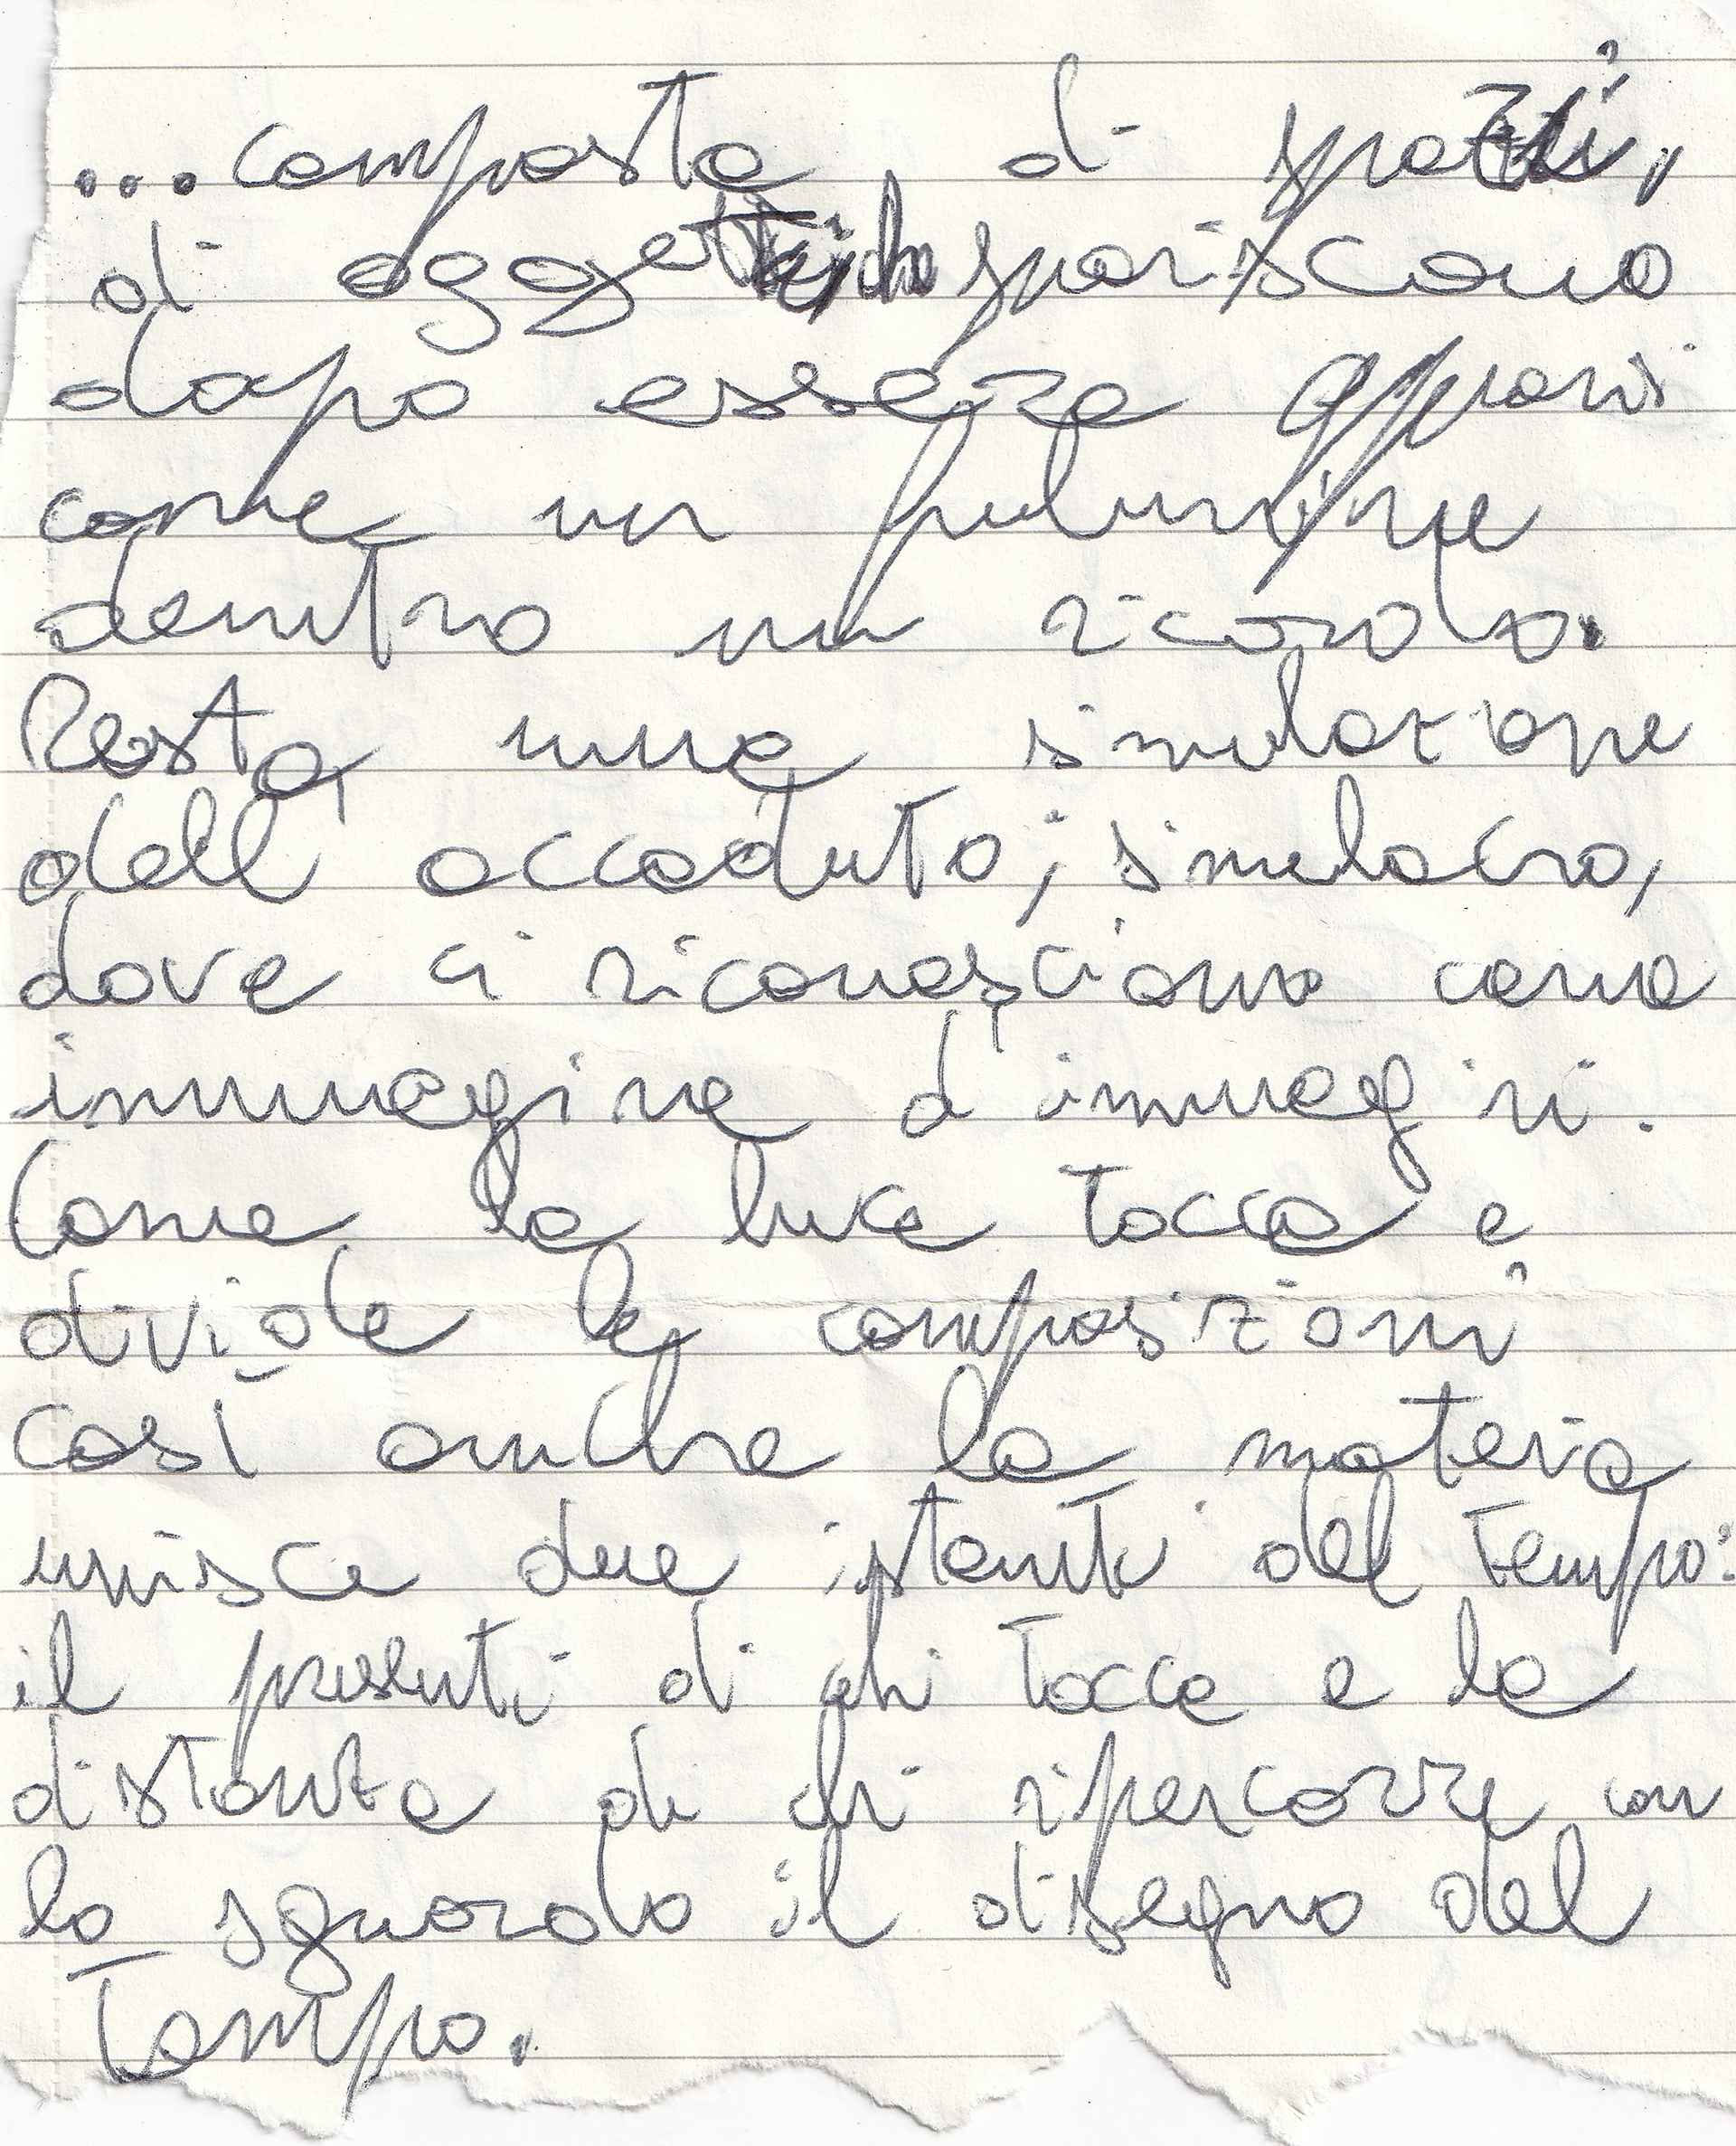 ...composta di spazi,
di oggetti spariscono
dopo essere apparsi
come un fulmine
dentro un ricordo.
Resta una simulazione
dell accaduto; simulacro,
dove ci riconosciamo come
immagine d immagini.
Come la luce tocca e
divide le composizioni
così anche la materia
unisce due istanti del tempo:
il presenti di chi tocca e la
distanza di chi ripercorre con
lo sguardo il disegno del
Tempo.